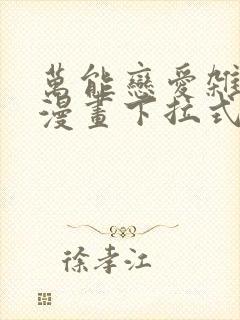 萬能戀愛雜
漫畫下拉式
徐孝江